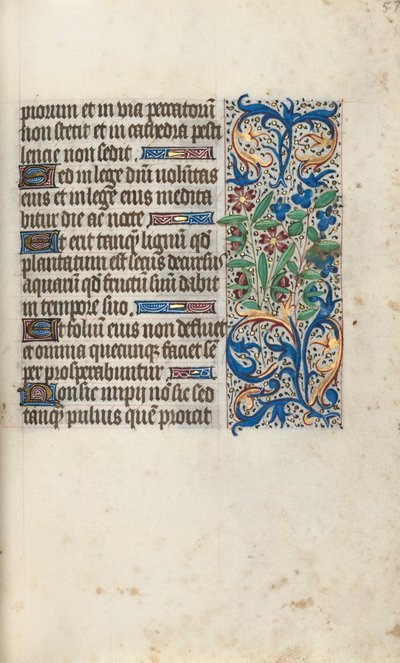 57
piorum et in via peccatorũ
non stetit et in cathedra pesti
lencie non sedit.
Sed in lege dñi voluntas
eius et in lege eius medita
bitur die ac nocte
Et erit tanq̃ lignũ qd̃
plantatum est secus decursus
aquarum qd̃ fructũ suũ dabit
in tempore suo.
Et foliũ eius non defluet
et omnia quecunq̃ faciet se
per prosperabuntur
Non sic impij nõ sic sed
tanq̃ puluis quẽ proicit